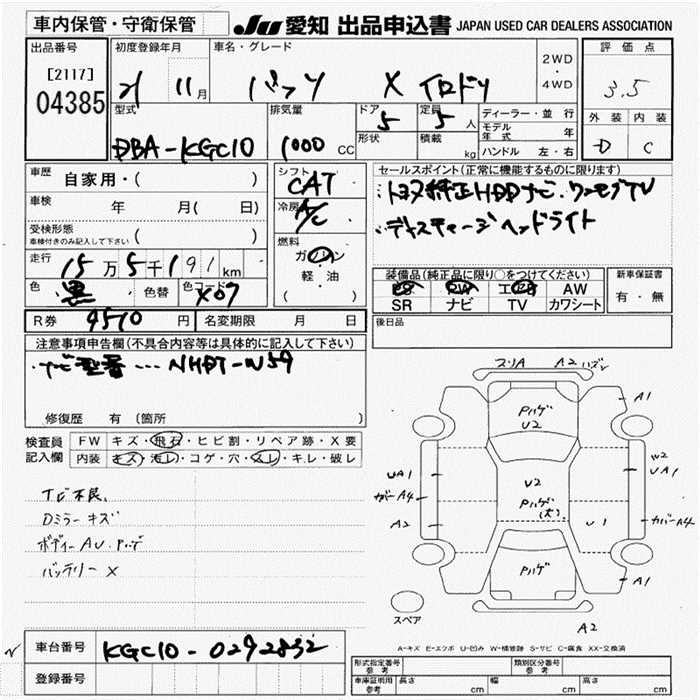 車内保管・守衛保管 JU 愛知 出品申込書 JAPAN USED CAR DEALERS ASSOCIATION
出品番号
[2117]
04385
初度登録年月
21 11月
車名・グレード
パッソ X イロドリ
2WD
・
4WD
評価点
3.5
外装 内装
D C
型式
DBA-KGC10
排気量
1000 CC
ドア
5
形状
定員
5人
積載
kg
ディーラー・並行
モデル年式 年
ハンドル 左・右
車歴 自家用・( )
車検 年 月( 日)
受検形態
車検付きのみ記入して下さい ( )
走行 15万5千191km
色 黒 色替 色コード X07
シフト
CAT
冷房
A/C
燃料
ガソリン
軽・油
( )
セールスポイント(正常に機能するものに限ります)
トヨタ純正HDDナビ.ワンセグTV
ディスチャージヘッドライト
装備品(純正品に限り○をつけてください)
PS PW エアB AW
SR ナビ TV カワシート
新車保証書
有・無
R券 9510円 名変期限 月 日
後日品
注意事項申告欄(不具合内容等は具体的に記入して下さい)
ナビ型番…NHDT-W59
修復歴 有 (箇所 )
検査員記入欄
FW キズ・飛石・ヒビ割・リペア跡・X要
内装 キズ・汚レ・コゲ・穴・スレ・キレ・破レ
TV不良、
Dミラーキズ
ボディーAU.Pハゲ
バッテリーX
スリA A2
Pハゲ
U2
A1
UA1
ガバーA4
A2
U2
Pハゲ
(大)
U1
W2
UA1
カバーA4
Pハゲ
A1
A2
スペア
A-キズ E-エクボ U-凹み W-補修跡 S-サビ C-腐食 XX-交換済
車台番号 KGC10-0292832
登録番号
形式指定番号
参考
類別区分番号
参考
車庫証明用
参考
長さ cm 幅 cm 高さ cm